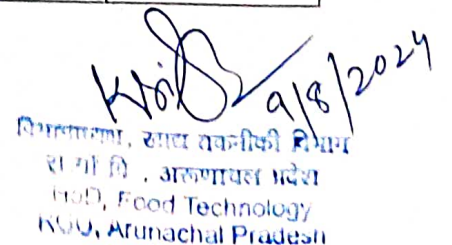 9/8/2024
विभागाध्यक्ष, खाद्य तकनीकी विभाग
रा.गाँ.वि., अरुणाचल प्रदेश
HoD, Food Technology
RGU, Arunachal Pradesh